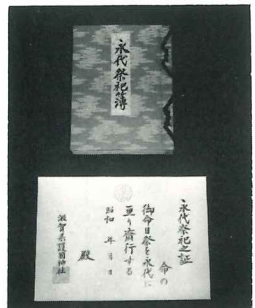 永代祭祀簿
永代祭祀之証
命の
御命日祭を永代に
亘り齎行する
昭和 年 月 日
滋賀県護国神社
殿